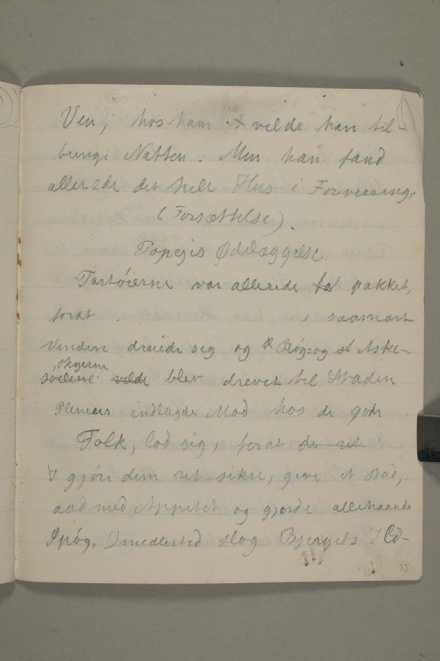 Ven, hos ham vilde han til-
bringe Natten. Men han fand
allerede det hele Hus i Forvirring.
(Forsættelse).
Pompejis Ødelæggelse
Fartöierne var allerede pakket,
forat saasnart
Vinden dreiede sig og Røg- og Aske-
skyerne
blev drevet til Staden
Plenius indtagde Mod hos de gode
Folk, lod sig, forat
gjöre dem ret sikre, give et Bad,
aad med Appetit og gjorde allehaande
Spög. Imedlertid slog Bjergets Ild-